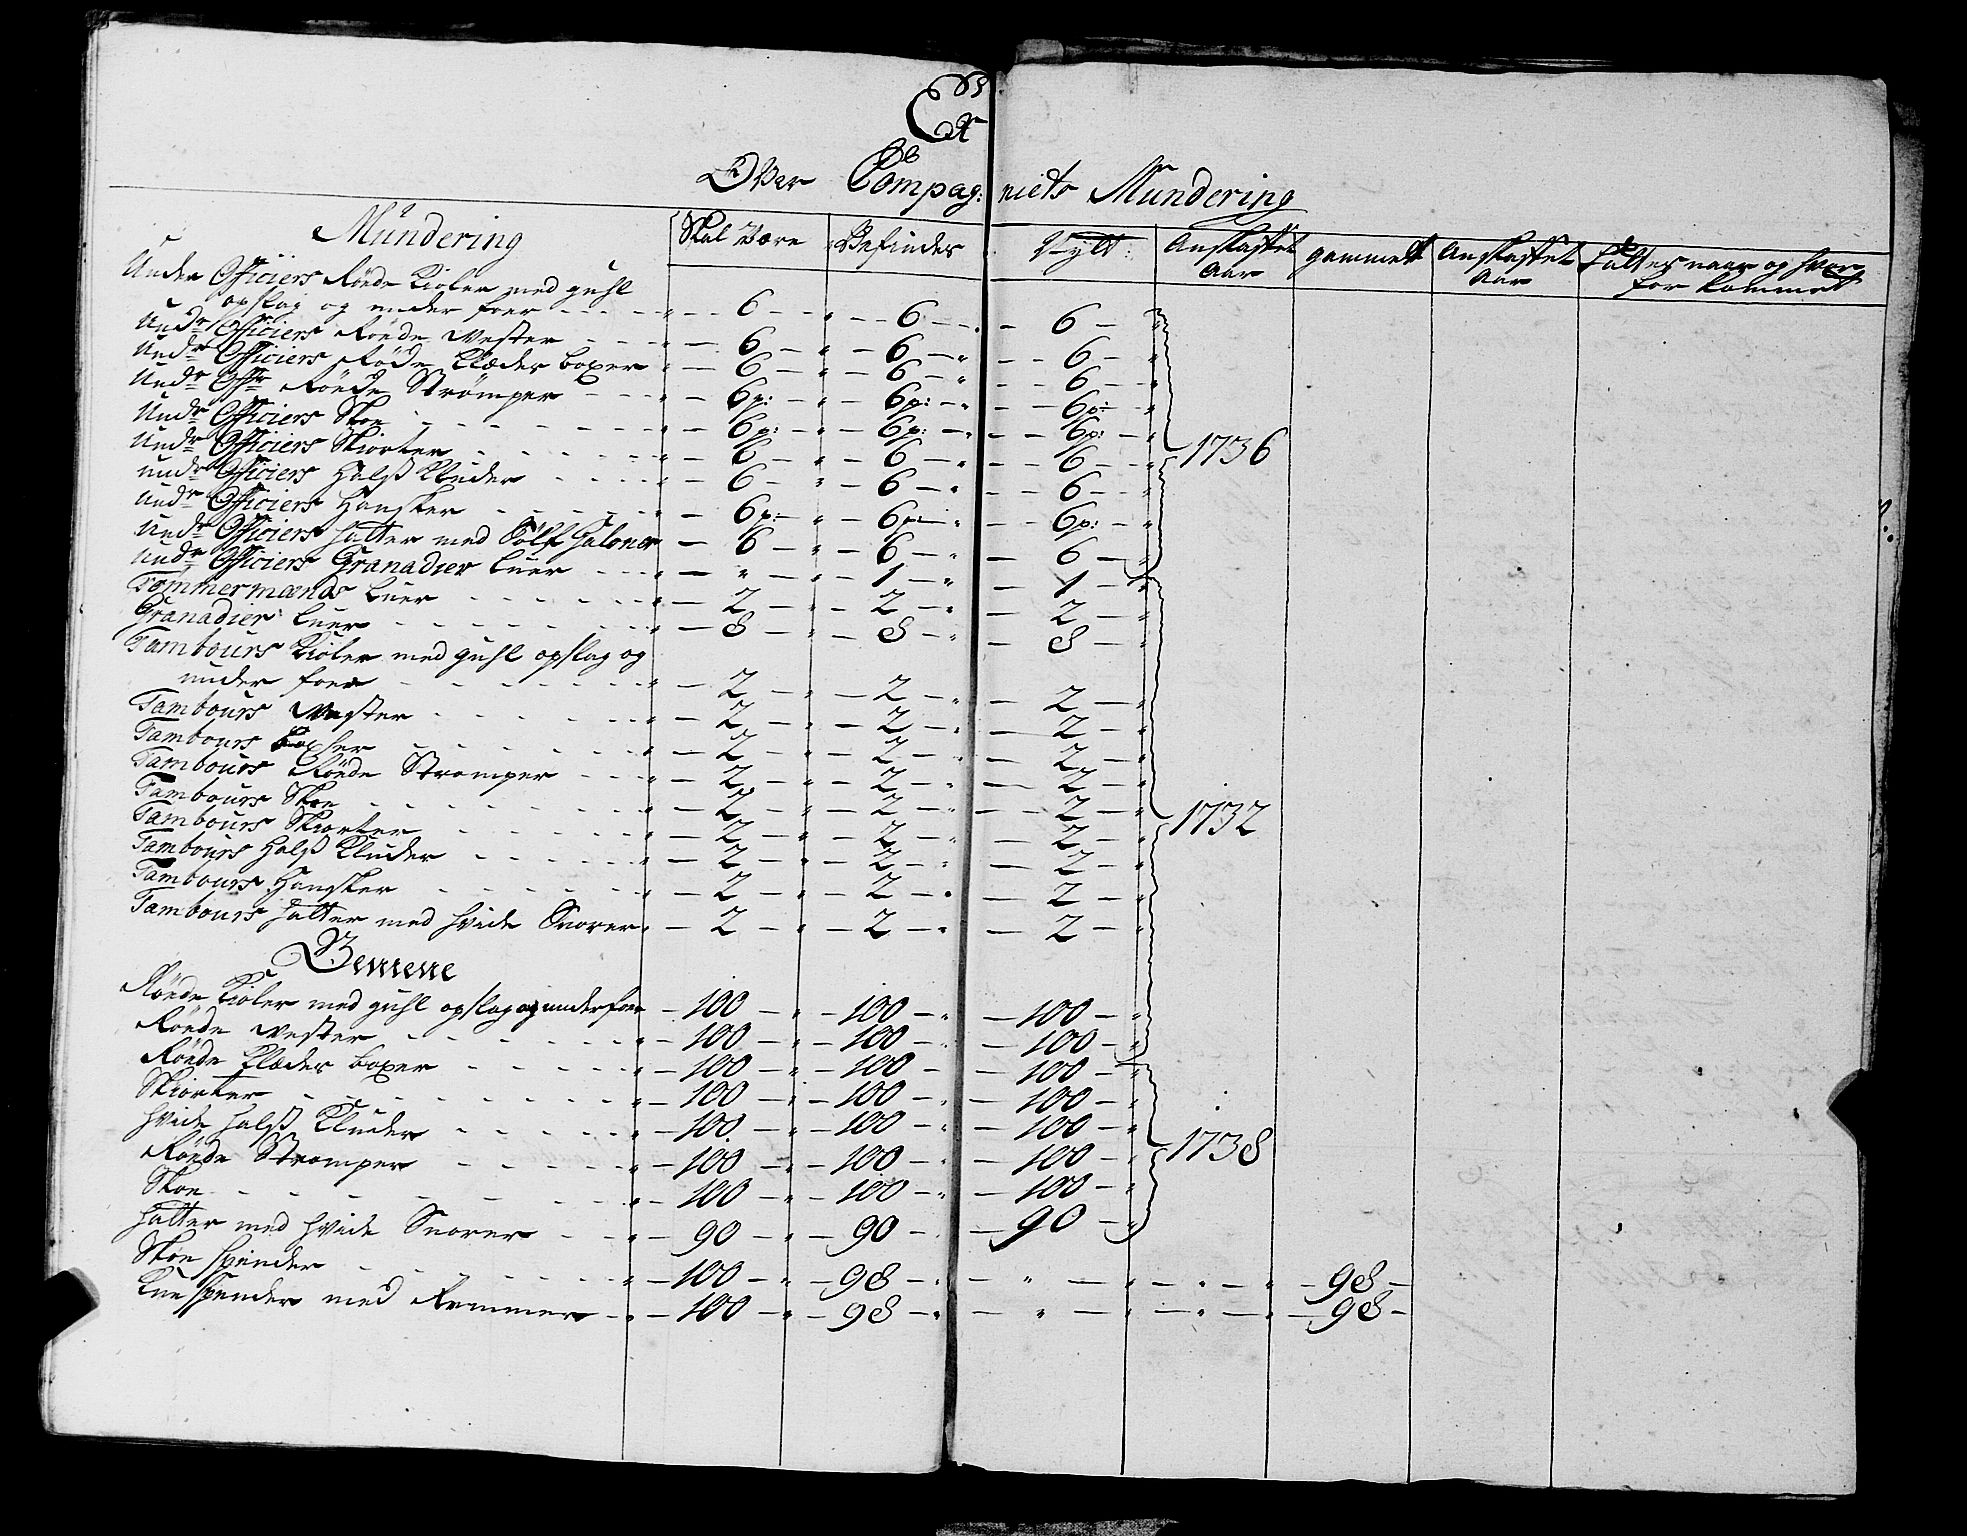 Ex
Over Compag: niets Mundering
Mundering Skal Være Befindes Nytt: Anskaffet Aar gammelt Anskaffet Aar fattes naar og hvor for kommet
Under Officiers Röede Kioler med guhl
opslag og under foer 6 6 6
Undr Officiers Röede Vester 6 6 6
Undr Officiers Röde Klæder boxer 6 6 6
Undr Offr Röede Strömper 6p: 6p: 6p:
Undr Officiers Skoe 6p: 6p: 6p:
Undr Officiers Skiorter 6 6 6 1736
undr Officiers Halss Kluder 6 6 6
Undr Officiers Hansker 6p: 6p: 6p:
Undr Officiers hatter med Sölf Galoner 6 6 6
undr Officiers Granadier Luer " 1 1
Tömmermænds Luer 2 2 2
Granadier Luer 8 8 8
Tambours Kioler med guhl opslag og
under foer 2 2 2
Tambours Vester 2 2 2
Tambours boxer 2 2 2
Tambours Röede Stromper 2 2 2
Tambours Skoe 2 2 2
Tambours Skiorter 2 2 2 1732
Tambours Halss Kluder 2 2 2
Tambours Hansker 2 2 2
Tambours hatter med hvide Snorer 2 2 2
Gemene
Röede Kioler med guhl opslag og underfoer 100 100 100
Röede Vester 100 100 100
Röede Klæder boxer 100 100 100
Skiorter 100 100 100
hvide halss Kluder 100 100 100
Röede Stromper 100 100 100 1738
Skoe 100 100 100
hatter med hvide Snorer 90 90 90
Skoe spender 100 98 " " 98
Knespender med Remmer 100 98 " " 98